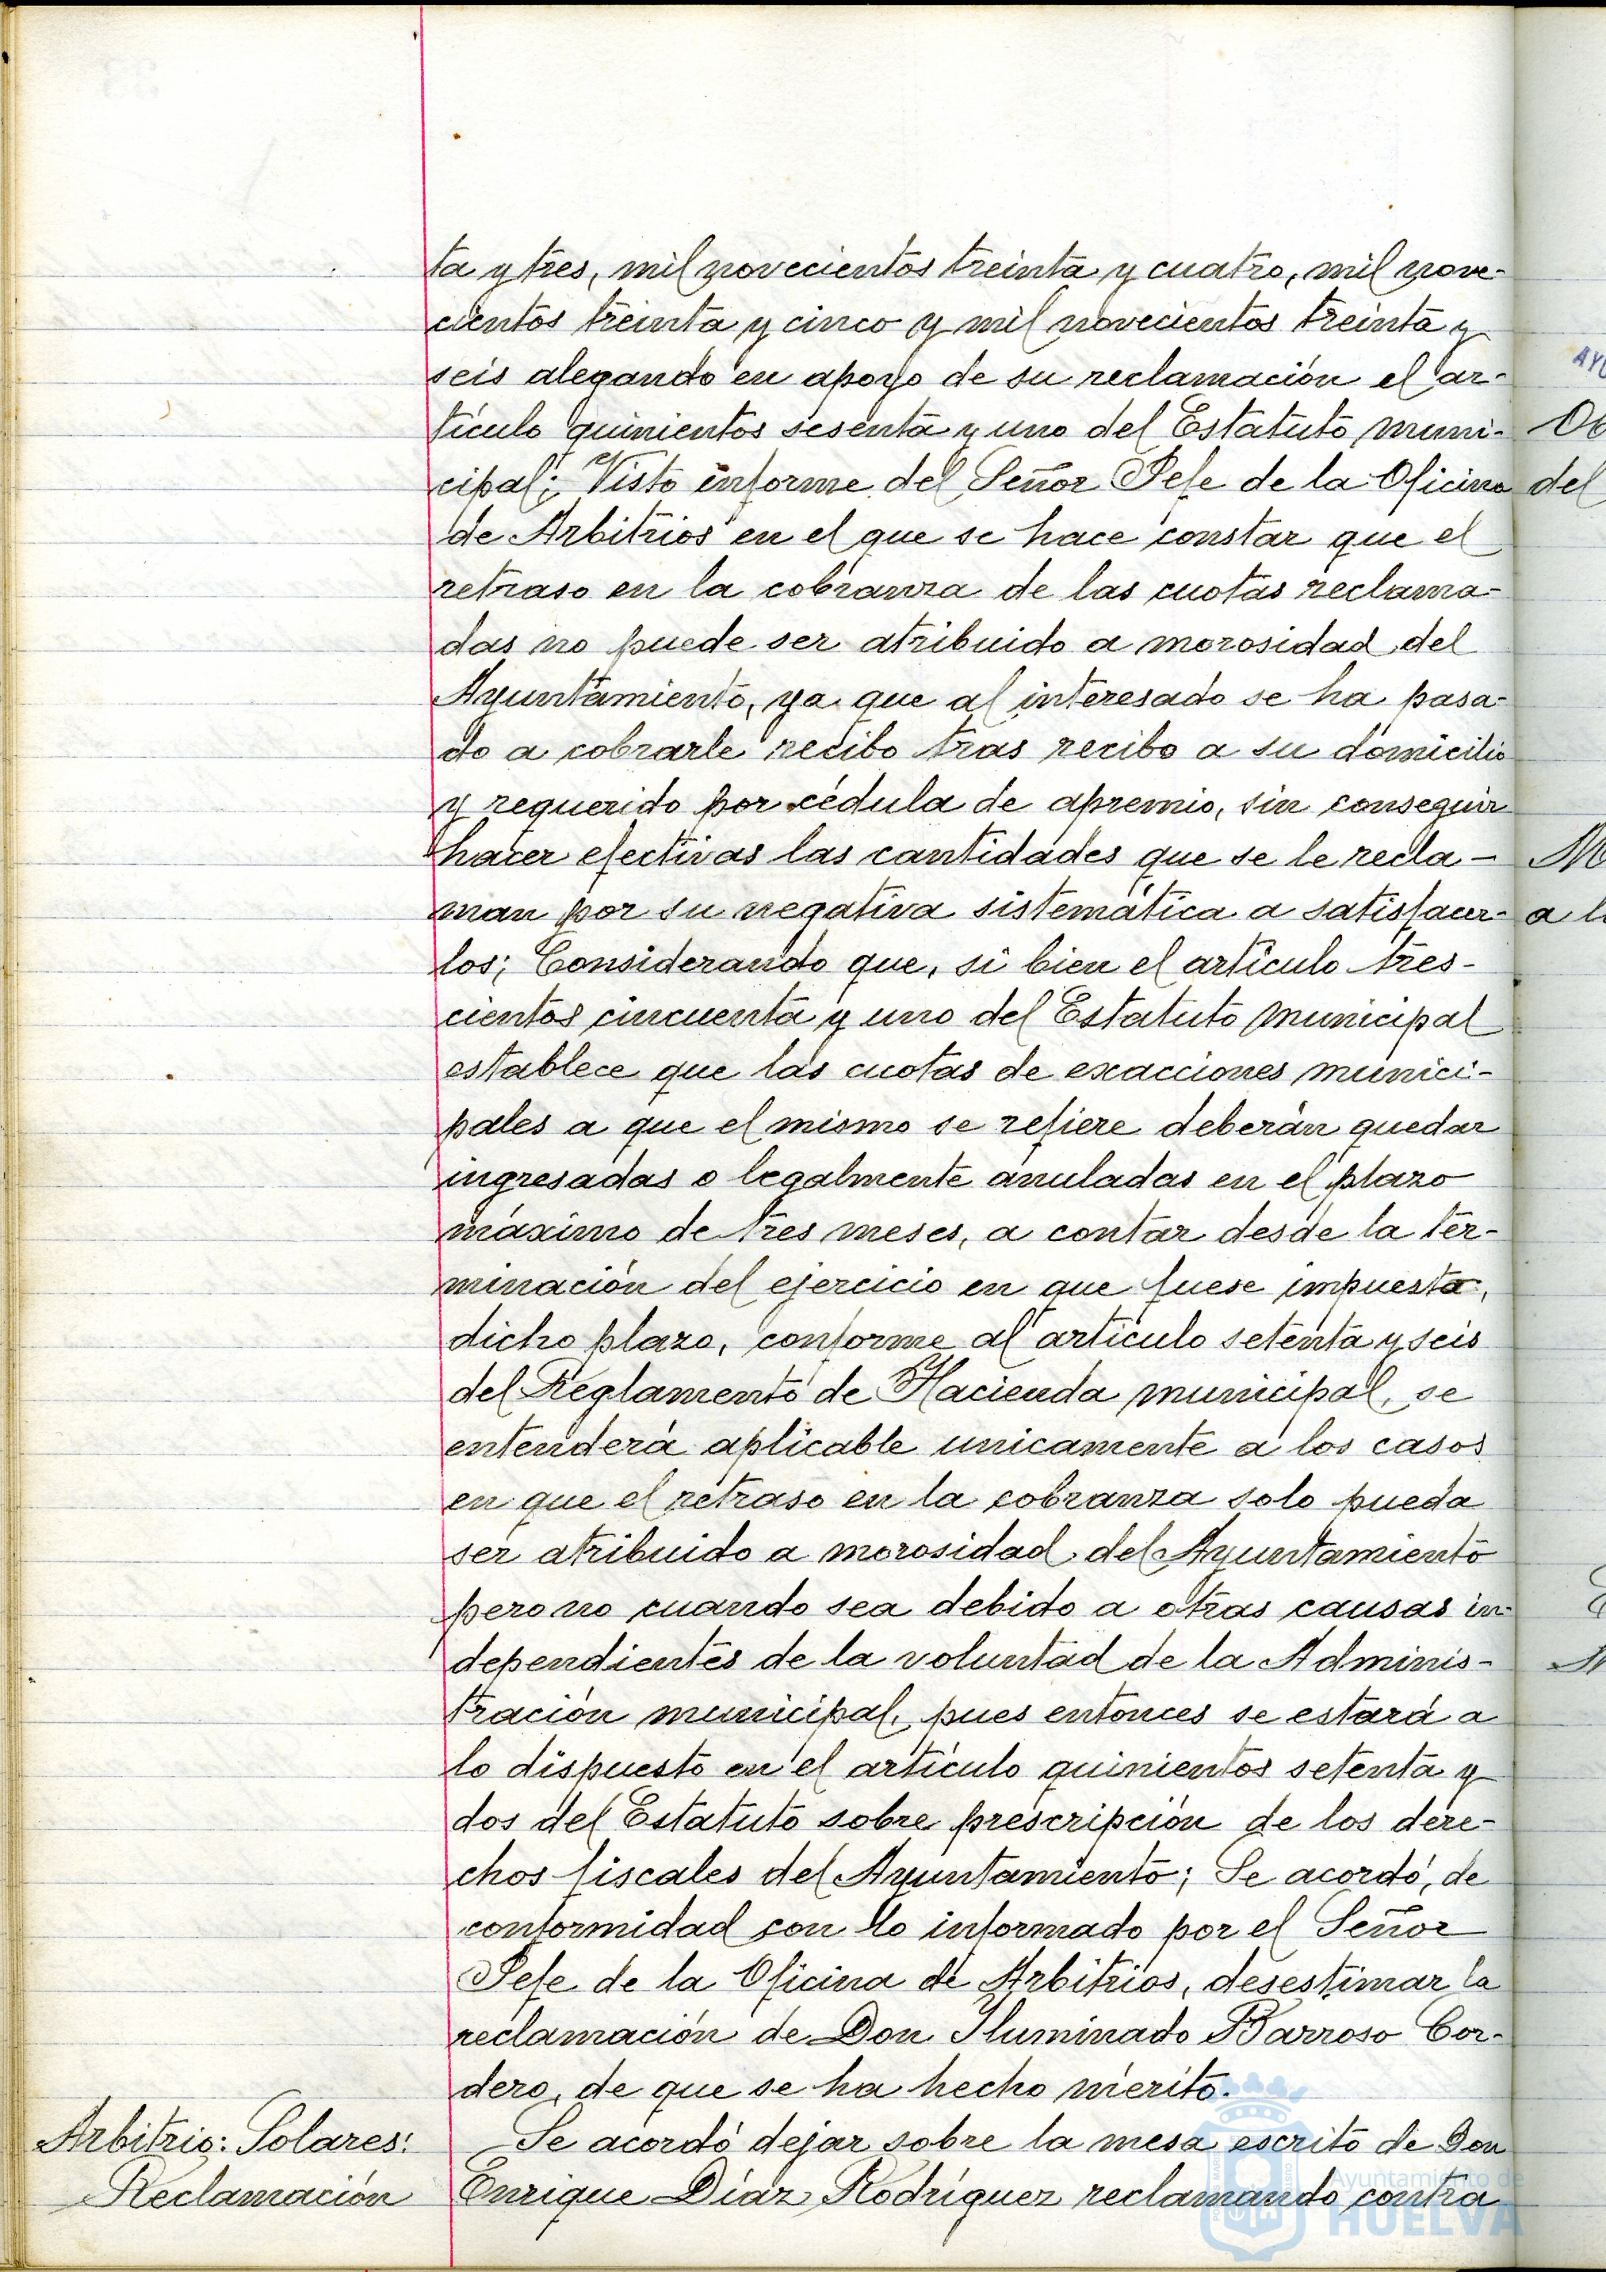 ta y tres, mil novecientos treinta y cuatro, mil nove-
cientos treinta y cinco y mil novecientos treinta y
seis alegando en apoyo de su reclamación el ar-
tículo quinientos sesenta y uno del Estatuto muni-
cipal; Visto informe del Señor Jefe de la Oficina
de Arbitrios en el que se hace constar que el
retraso en la cobranza de las cuotas reclama-
das no puede ser atribuido a morosidad del
Ayuntamiento, ya que al interesado se ha pasa-
do a cobrarle recibo tras recibo a su domicilio
y requerido por cédula de apremio, sin conseguir
hacer efectivas las cantidades que se le recla-
man por su negativa sistemática a satisfacer-
los; Considerando que, si bien el artículo tres-
cientos cincuenta y uno del Estatuto municipal
establece que las cuotas de exacciones munici-
pales a que el mismo se refiere deberán quedar
ingresadas o legalmente anuladas en el plazo
máximo de tres meses, a contar desde la ter-
minación del ejercicio en que fuese impuesta,
dicho plazo, conforme al artículo setenta y seis
del Reglamento de Hacienda municipal, se
entenderá aplicable unicamente a los casos
en que el retraso en la cobranza solo pueda
ser atribuido a morosidad del Ayuntamiento
pero no cuando sea debido a otras causas in-
dependientes de la voluntad de la Adminis-
tración municipal, pues entonces se estará a
lo dispuesto en el artículo quinientos setenta y
dos del Estatuto sobre prescripción de los dere-
chos fiscales del Ayuntamiento; Se acordó, de
conformidad con lo informado por el Señor
Jefe de la Oficina de Arbitrios, desestimar la
reclamación de Don Iluminado Barroso Cor-
dero, de que se ha hecho mérito.
Arbitrio: Solares:
Reclamación
Se acordó dejar sobre la mesa escrito de Don
Enrique Díaz Rodríguez reclamando contra
Ayuntamiento de
HUELVA
del